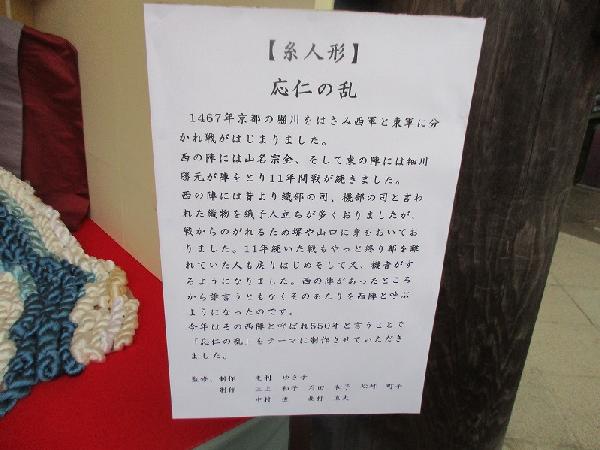 【糸人形】
応仁の乱
1467年京都の堀川をはさみ西軍と東軍に分
かれ戦がはじまりました。
西の陣には山名宗全、そして東の陣には細川
勝元が陣をとり11年間戦が続きました。
西の陣には昔より織部の司、機部の司と言わ
れた織物を織る人立ちが多くおりましたが、
戦からのがれるため堺や山口に身をおいてお
りました。11年続いた戦もやっと終り都を離
れていた人も戻りはじめそして又、機音がす
るようになりました。西の陣があったところ
から誰言うともなくそのあたりを西陣と呼ぶ
ようになったのです。
今年はその西陣と呼ばれ550才と言うことで
「応仁の乱」をテーマに制作させていただき
ました。
監修、制作 毛利 ゆき子
制作 三上 和子 町子
中村